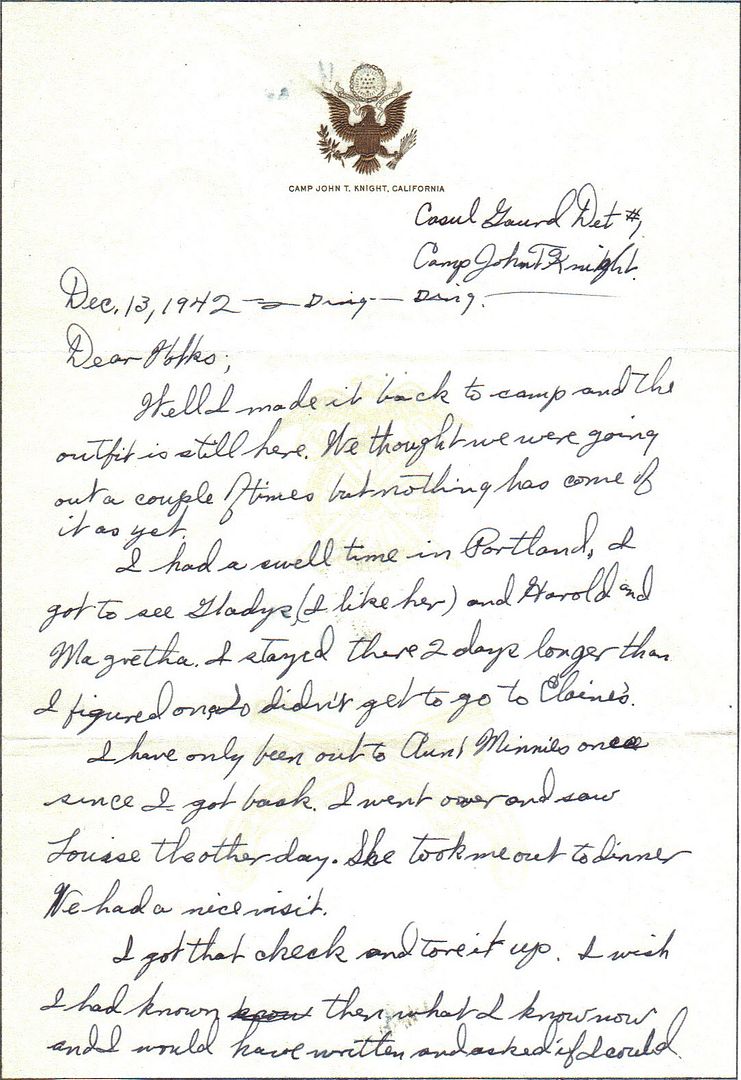 CAMP JOHN T. KNIGHT, CALIFORNIA
Casul Gaurd Det #1
Camp John T Knight.
Dec. 13, 1942 — Ding — Ding.
Dear Folks;
Well I made it back to camp and the
outfit is still here. We thought we were going
out a couple of times but nothing has come of
it as yet.
I had a swell time in Portland, I
got to see Gladys, (I like her) and Harold and
Magretha. I stayed there 2 days longer than
I figured on, so didn't get to go to Elaine's.
I have only been out to Aunt Minnies once
since I got back. I went over and saw
Louise the other day. She took me out to dinner
We had a nice visit.
I got that check and tore it up. I wish
I had known know then what I know now
and I would have written and asked if I could